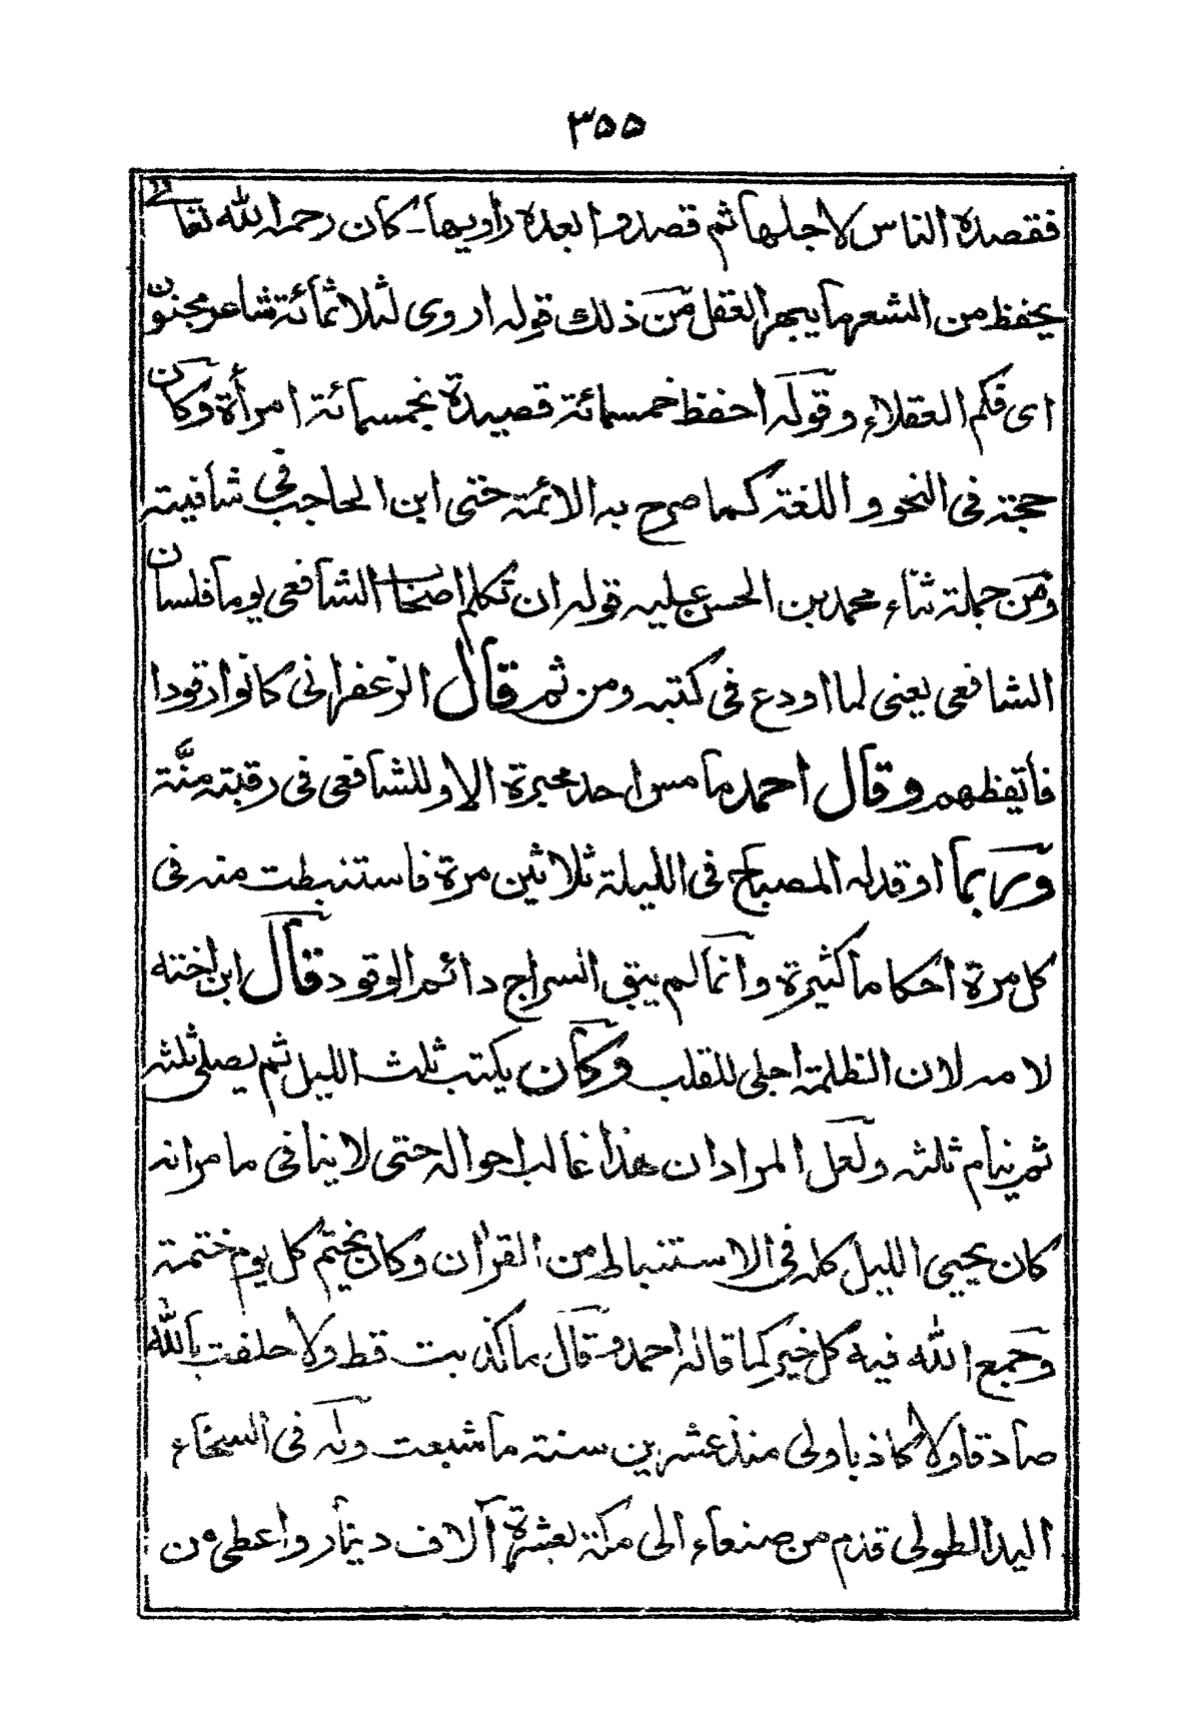 ٣٥٥
فقصده الناس لاجلها ثم قصدوا بعده راويها ـ كان رحمه الله تعالى
يحفظ من الشعر ما يبهر العقل فمن ذلك قوله اروى لثلاثمائة شاعر مجنون
اى فكم العقلاء وقوله احفظ خمسمائة قصيدة بخمسمائة امرأة وكان
حجة فى النحو واللغة كما صرح به الائمة حتى ابن الحاجب فى شافيته
ومن جملة ثناء محمد بن الحسن عليه قوله ان تكلم اصحاب الشافعى يوما فلسان
الشافعى يعنى لما اودع فى كتبه ومن ثم قال الزعفرانى كانوا رقودا
فأيقظهم وقال احمد ما مس احد محبرة الا وللشافعى فى رقبته منَّة
وربما اوقد له المصباح فى الليلة ثلاثين مرة فاستنبطت منه فى
كل مرة احكاما كثيرة وانما لم يبق السراج دائم الوقود قال ابن اخته
لامه لان الظلمة اجلى للقلب وكان يكتب ثلث الليل ثم يصلى ثلثه
ثم ينام ثلثه ولعل المراد ان هذا غالب احواله حتى لا ينافى ما مر انه
كان يحيى الليل كله فى الاستنباط من القران وكان يختم كل يوم ختمة
وجمع الله فيه كل خير كما قاله احمد وقال ما كذبت قط ولا حلفت بالله
صادقا ولا كاذبا ولى منذ عشرين سنة ما شبعت وله فى السخاء
اليد الطولى قدم من صنعاء الى مكة بعشرة آلاف دينار واعطى من